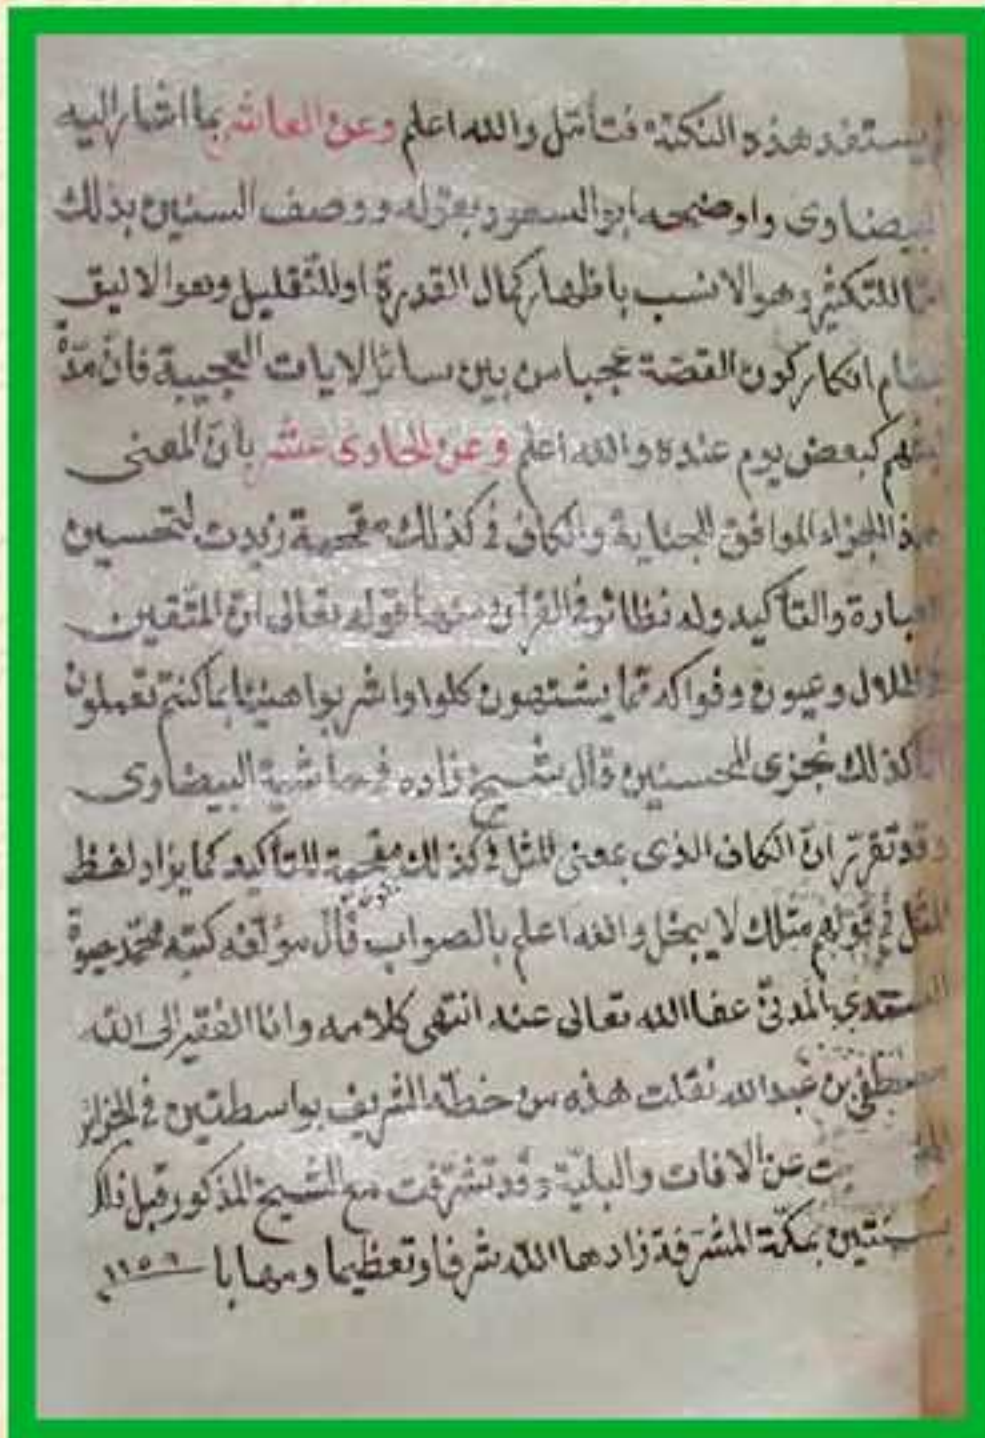 يستفد هذه النكتة فتأمل والله اعلم وعن العاشر بما اشار اليه
البيضاوى واوضحه ابو السعود بقوله ووصف السنين بذلك
اما للتكثير وهو الانسب باظهار كمال القدرة او للتقليل وهو الاليق
بمقام انكار كون القصة عجبا من بين سائر الايات العجيبة فان مدة
لبثهم كبعض يوم عنده والله اعلم وعن الحادى عشر بان المعنى
هذا الجزاء الموافق للجناية والكاف فى كذلك مقحمة زيدت لتحسين
العبارة والتأكيد وله نظائر فى القرآن منها قوله تعالى ان المتقين
فى ظلال وعيون وفواكه مما يشتهون كلوا واشربوا هنيئا بما كنتم تعملون
انا كذلك نجزى المحسنين قال شيخ زاده فى حاشية البيضاوى
وقد تقرر ان الكاف الذى بمعنى المثل فى كذلك مقحمة للتأكيد كما يزاد لفظ
المثل فى قولهم مثلك لا يبخل والله اعلم بالصواب قال مؤلفه كتبه محمد حيوة
السندي المدنى عفا الله تعالى عنه انتهى كلامه وانا الفقير الى الله
مصطفى بن عبد الله نقلت هذه من خطه الشريف بواسطتين فى الجزائر
عن الافات والبلية وقد تشرفت مع الشيخ المذكور قبل ذلك
بسنتين بمكة المشرفة زادها الله شرفا وتعظيما ومهابا ١١٥٦